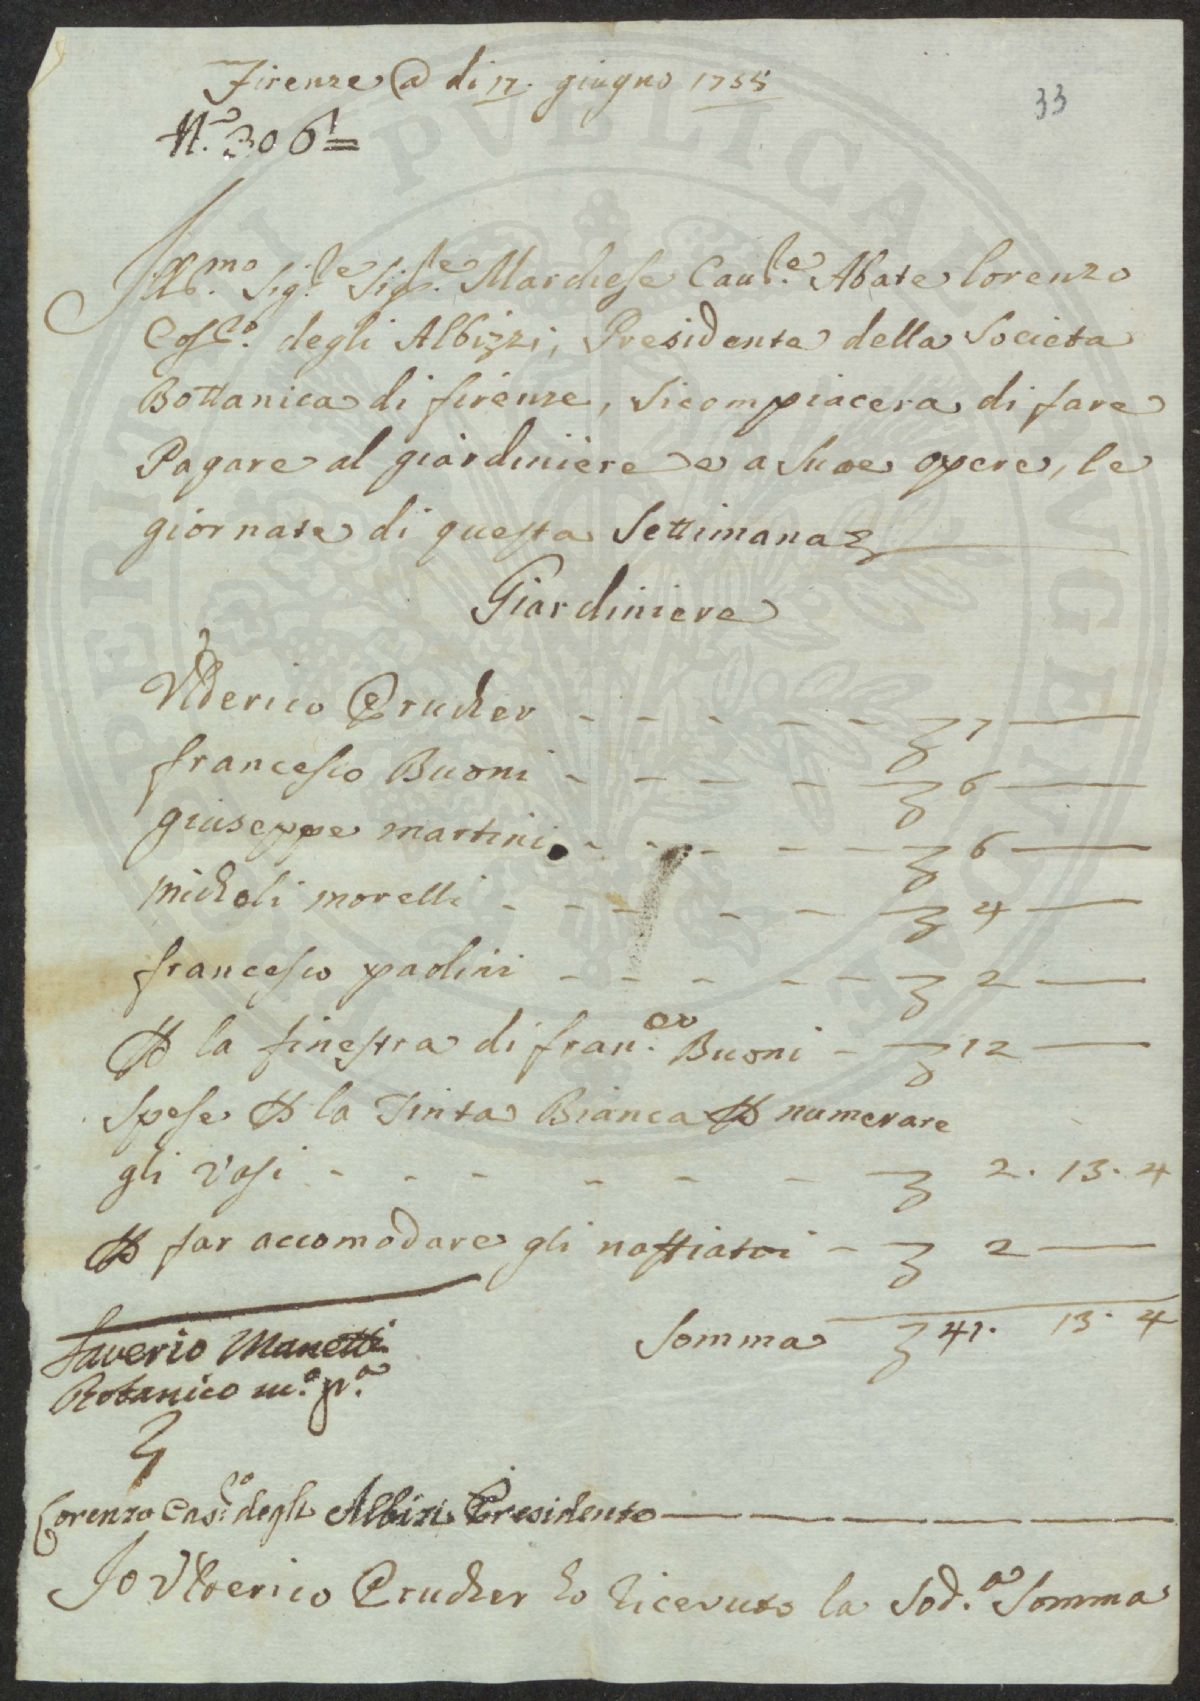 Firenze @ di 17. giugno 1755
33
N.° 306
Ill.mo Sig.re Sig.re Marchese Cav.re Abate Lorenzo
degli Albizzi, Presidente della Societa
Bottanica di firenze, si compiacera di fare
Pagare al giardiniere e a Sue opere, le
giornate di questa Settimana
Giardiniere
Ulderico Prucker - - - - - 7 —
francesco Buoni - - - - - 6 —
giuseppe martini - - - - - 6 —
micheli morelli - - - - - 4 —
francesco paolini - - - - - 2 —
P la finestra di fran.co Buoni - 12 —
Spese P la Tinta Bianca P numerare
gli Vasi - - - - - - 2. 13. 4
P far accomodare gli naffiatoi - 2 —
Somma 41. 13. 4
Saverio Manetti
Botanico m.o p.a
Lorenzo degli Albizi Presidente
Io Ulderico Prucker ho riceuuto la Sod.a Somma
PVBLICAE
INGENIO
PERITURI